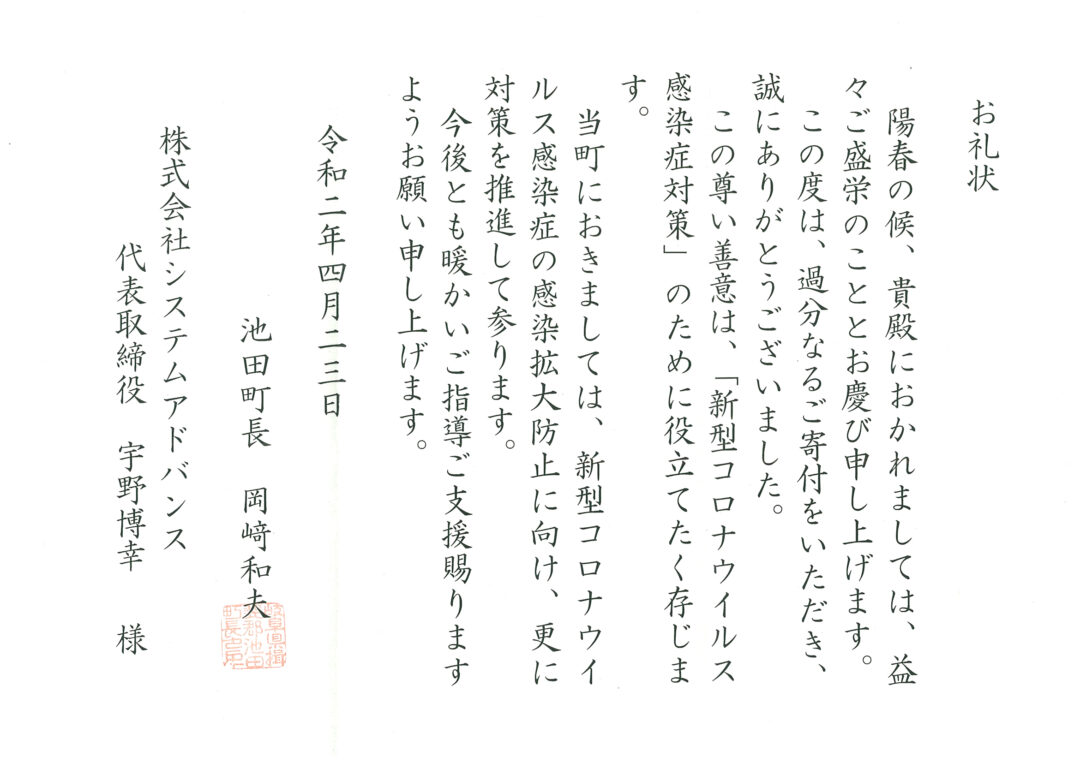 お礼状
陽春の候、貴殿におかれましては、益
々ご盛栄のこととお慶び申し上げます。
この度は、過分なるご寄付をいただき、
誠にありがとうございました。
この尊い善意は、「新型コロナウイルス
感染症対策」のために役立てたく存じま
す。
当町におきましては、新型コロナウイ
ルス感染症の感染拡大防止に向け、更に
対策を推進して参ります。
今後とも暖かいご指導ご支援賜ります
ようお願い申し上げます。
令和二年四月二三日
池田町長 岡﨑和夫
株式会社システムアドバンス
代表取締役 宇野博幸 様